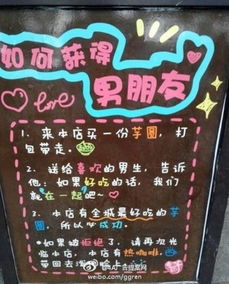 如何获得
男朋友
love
1. 来本店买一份芋圆，打
包带走
2. 送给喜欢的男生，告诉
他：如果好吃的话，我们
就在一起吧~
3. 本店有全城最好吃的芋
圆，所以必成功。
•如果被拒绝了，请再次光
临本店，本店有热咖啡，
带回去泼他脸上
weibo.com/ggren